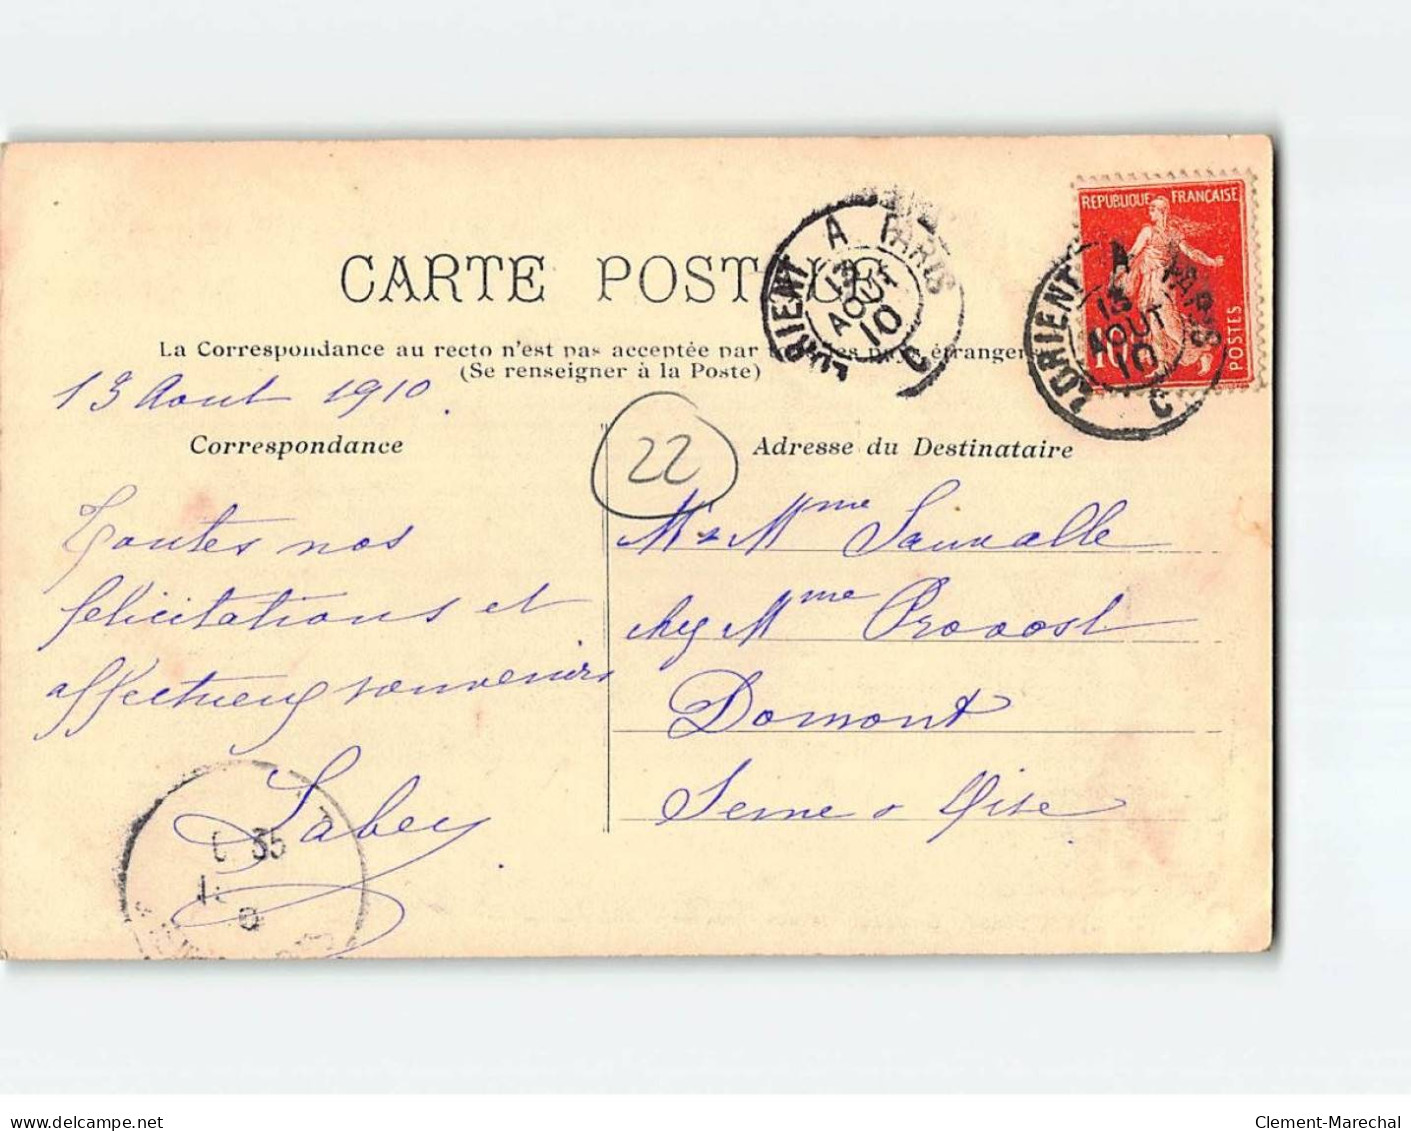 CARTE POSTALE
La Correspondance au recto n'est pas acceptée par tous les pays étrangers
(Se renseigner à la Poste)
13 Aout 1910.
Correspondance
Toutes nos
félicitations et
affectueux souvenirs
Labey
22
Adresse du Destinataire
Mr & Mme Sauvalle
chez Mme Provost
Domont
Seine & Oise
LORIENT A PARIS
13
AOUT
10
C
REPUBLIQUE FRANÇAISE
10
POSTES
LORIENT A PARIS
13
AOUT
10
C
35
www.delcampe.net
Clement-Marechal